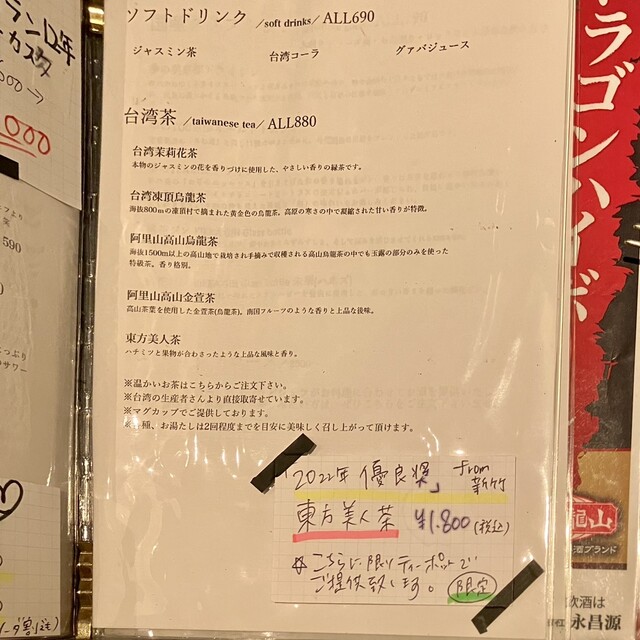 ラン12年
カスタ
000→
000
590
ソフトドリンク /soft drinks/ ALL690
ジャスミン茶 台湾コーラ グァバジュース
台湾茶 /taiwanese tea/ ALL880
台湾茉莉花茶
本物のジャスミンの花を香りづけに使用した、やさしい香りの緑茶です。
台湾凍頂烏龍茶
海抜800mの凍頂村で摘まれた黄金色の烏龍茶。高原の寒さの中で凝縮された甘い香りが特徴。
阿里山高山烏龍茶
海抜1500m以上の高山地で栽培され手摘みで収穫される高山烏龍茶の中でも玉露の部分のみを使った
特級茶。香り格別。
阿里山高山金萱茶
高山茶葉を使用した金萱茶(烏龍茶)。南国フルーツのような香りと上品な後味。
東方美人茶
ハチミツと果物が合わさったような上品な風味と香り。
※温かいお茶はこちらからご注文下さい。
※台湾の生産者さんより直接取寄せています。
※マグカップでご提供しております。
種、お湯たしは2回程度までを目安に美味しく召し上がって頂けます。
「2022年 優良奨」 from 新竹
東方美人茶 ¥1.800(税込)
☆こちらに限りティーポットで
ご提供致します。 限定
ラゴンハイボ
龍山
酒ブランド
飲酒は
永昌源